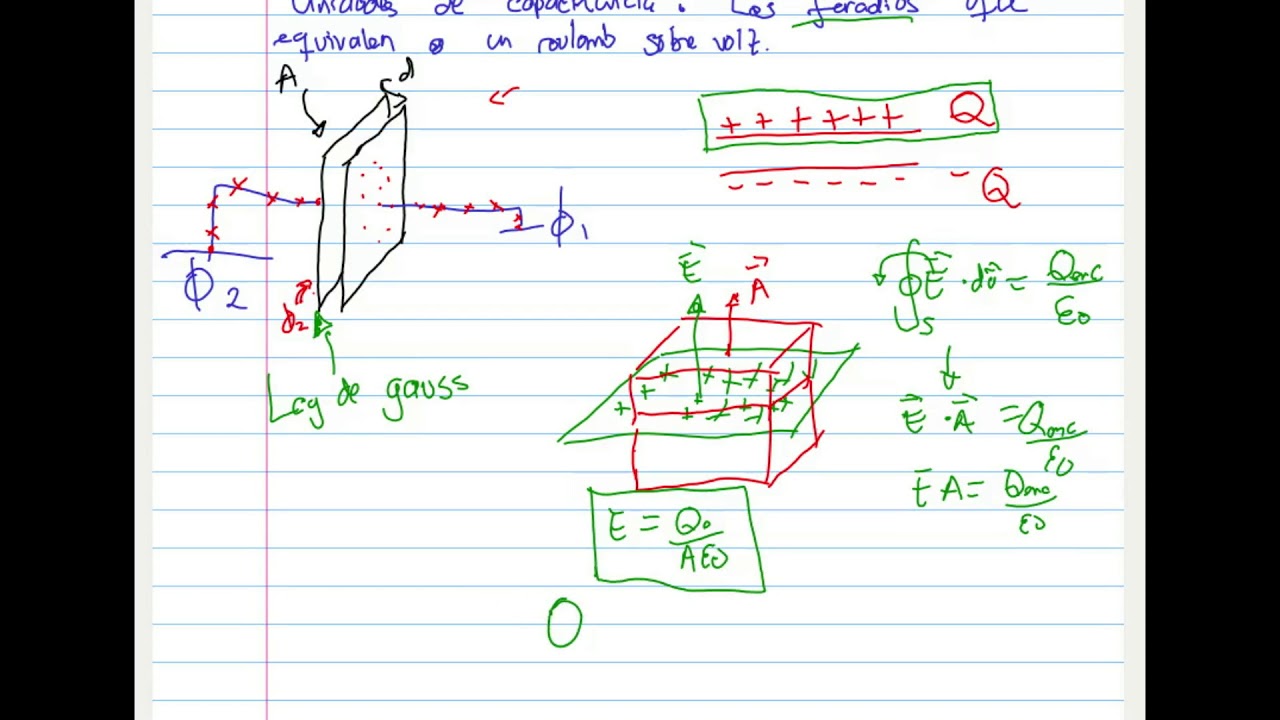 Unidades de capacitancia: Los feradios que
equivalen a un coulomb sobre volt.
A
d
+ + + + + + Q
- - - - - - - Q
ϕ1
ϕ2
ϕ2
Ley de gauss
E⃗ A⃗
∮s E⃗ · dσ⃗ = Qenc/ε0
E⃗ · A⃗ = Qenc/ε0
E A = Qenc/ε0
E = Q0/Aε0
0